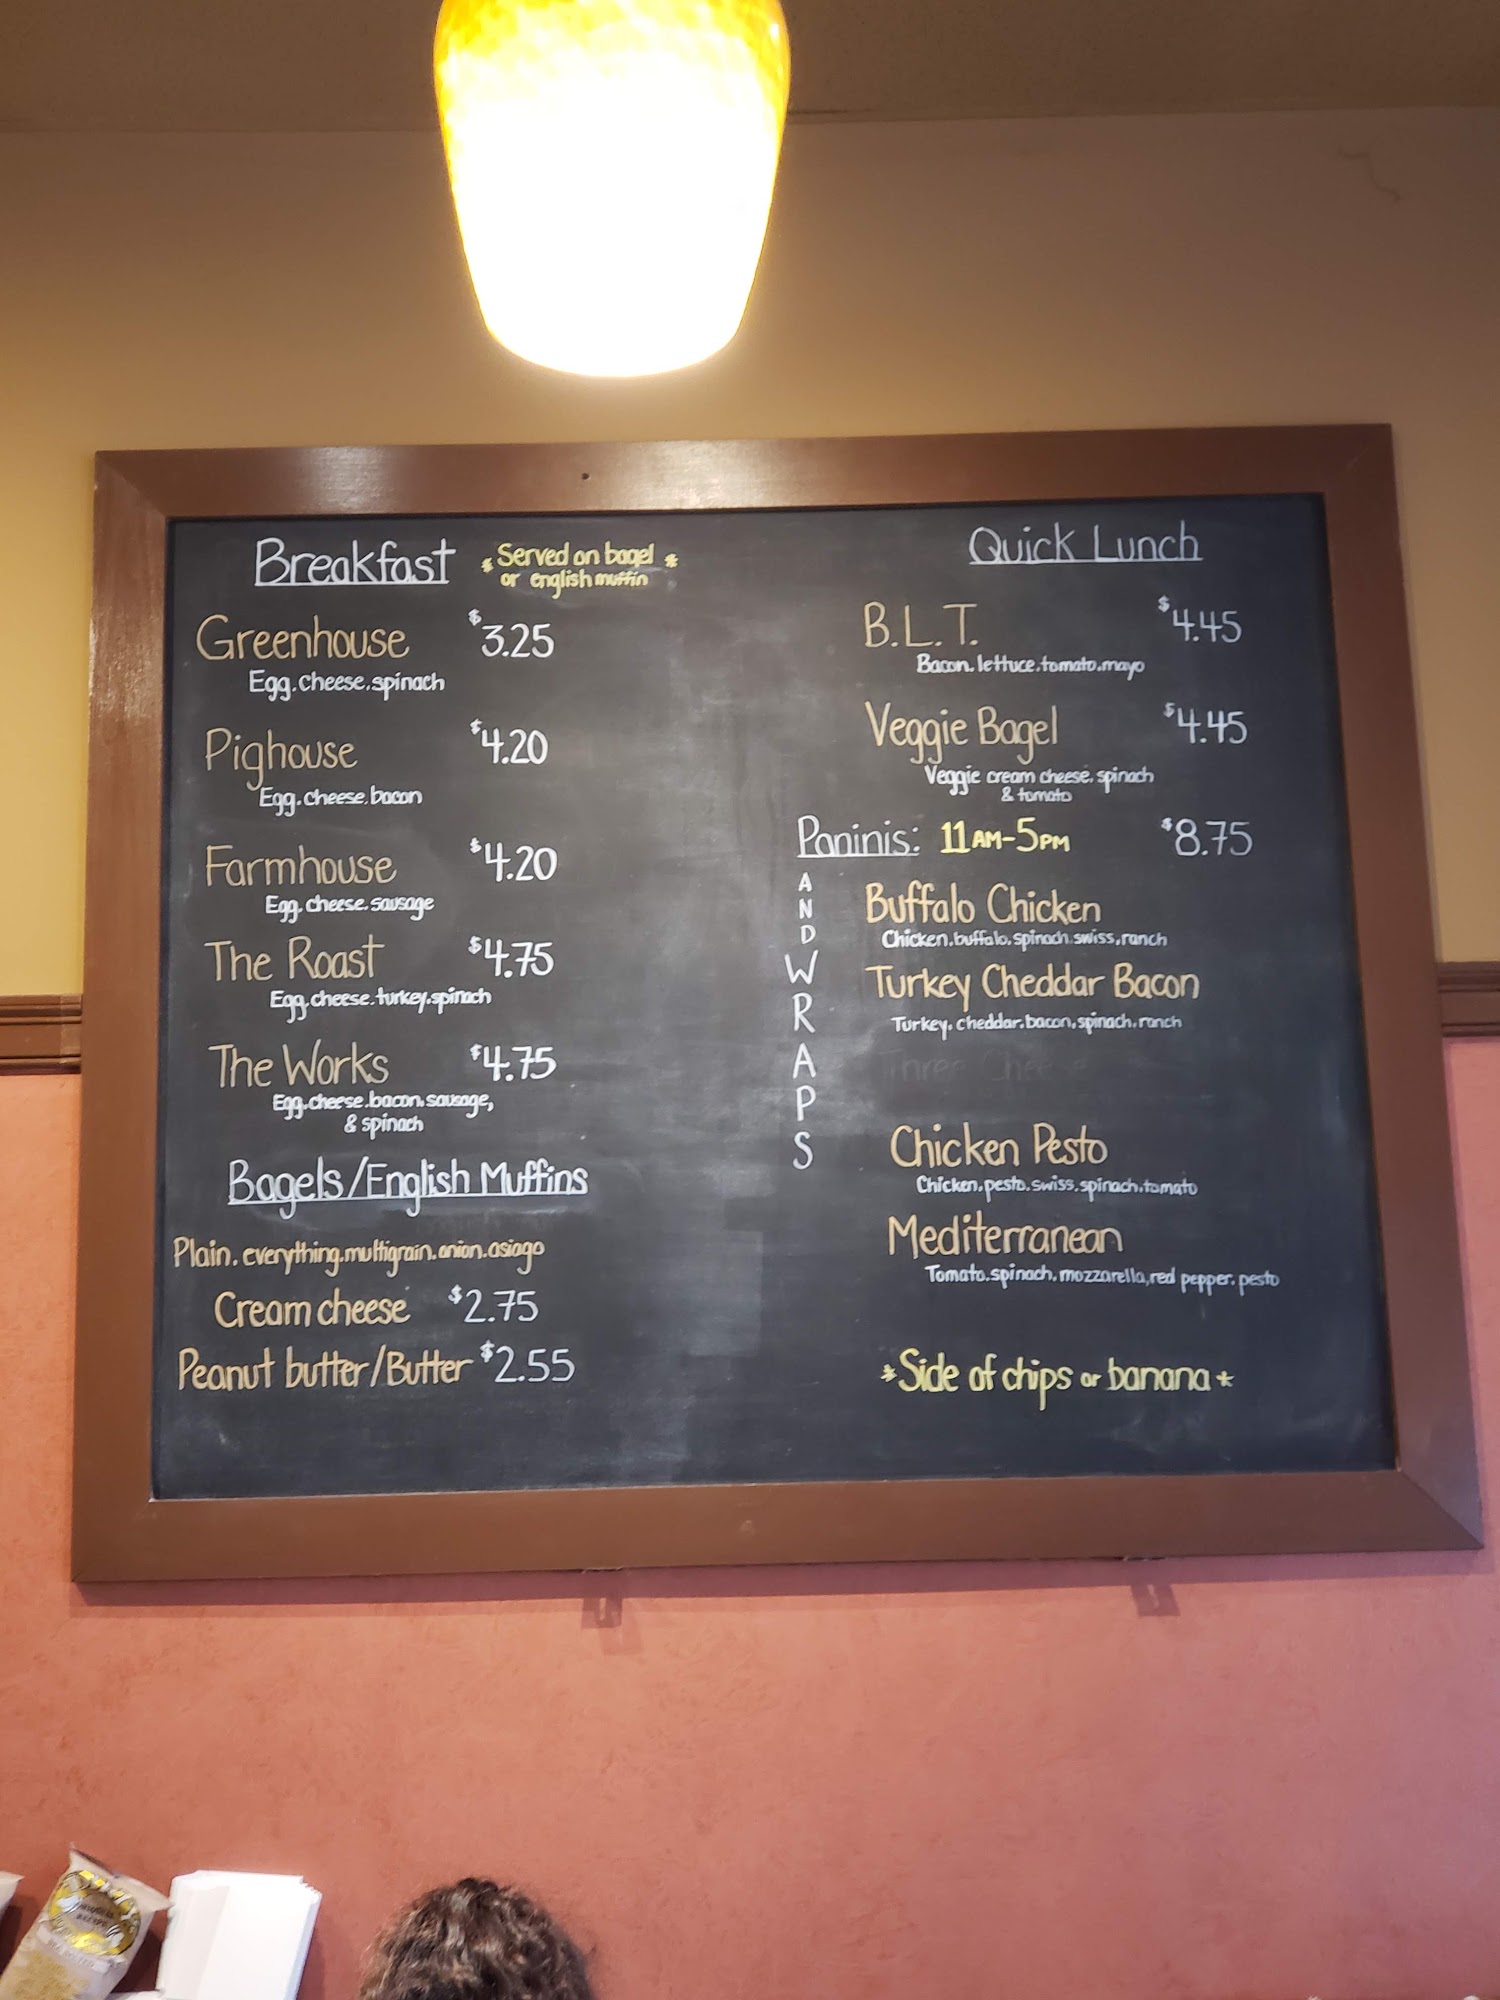 Breakfast
* Served on bagel *
or english muffin
Greenhouse $3.25
Egg. cheese. spinach
Pighouse $4.20
Egg. cheese. bacon
Farmhouse $4.20
Egg. cheese. sausage
The Roast $4.75
Egg. cheese. turkey. spinach
The Works $4.75
Egg. cheese. bacon. sausage,
& spinach
Bagels/English Muffins
Plain. everything. multigrain. onion. asiago
Cream cheese $2.75
Peanut butter/Butter $2.55
Quick Lunch
B.L.T. $4.45
Bacon. lettuce. tomato. mayo
Veggie Bagel $4.45
Veggie cream cheese, spinach
& tomato
Paninis: 11AM-5PM $8.75
AND WRAPS
Buffalo Chicken
Chicken. buffalo. spinach. swiss, ranch
Turkey Cheddar Bacon
Turkey. cheddar. bacon, spinach. ranch
Three Cheese
Chicken Pesto
Chicken, pesto. swiss. spinach. tomato
Mediterranean
Tomato. spinach. mozzarella, red pepper. pesto
*Side of chips or banana*